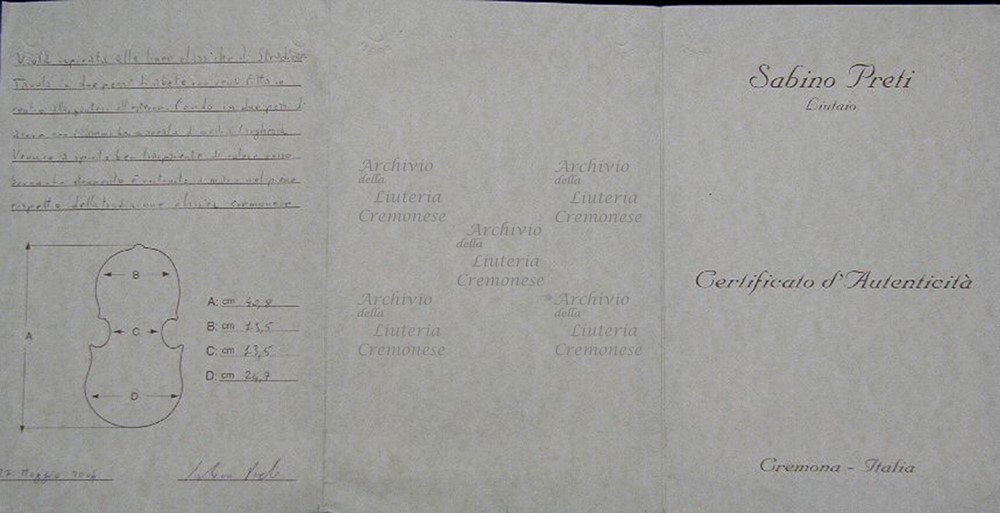 Viola ispirata alle linee classiche di Stradivari
Tavola in due pezzi di abete con vena fitta in
centro all'esterno. Fondo in due pezzi di
acero con a media larghezza
Vernice a spirito ben trasparente di colore rosso
strumento è costruito a mano nel pieno
rispetto della tradizione classica cremonese
A
B
C
D
A: cm 40,8
B: cm
C: cm 13,5
D: cm 24,7
Maggio
Sabino Preti
Archivio
della
Liuteria
Cremonese
Archivio
della
Liuteria
Cremonese
Archivio
della
Liuteria
Cremonese
Archivio
della
Liuteria
Cremonese
Archivio
della
Liuteria
Cremonese
Sabino Preti
Liutaio
Certificato d'Autenticità
Cremona - Italia